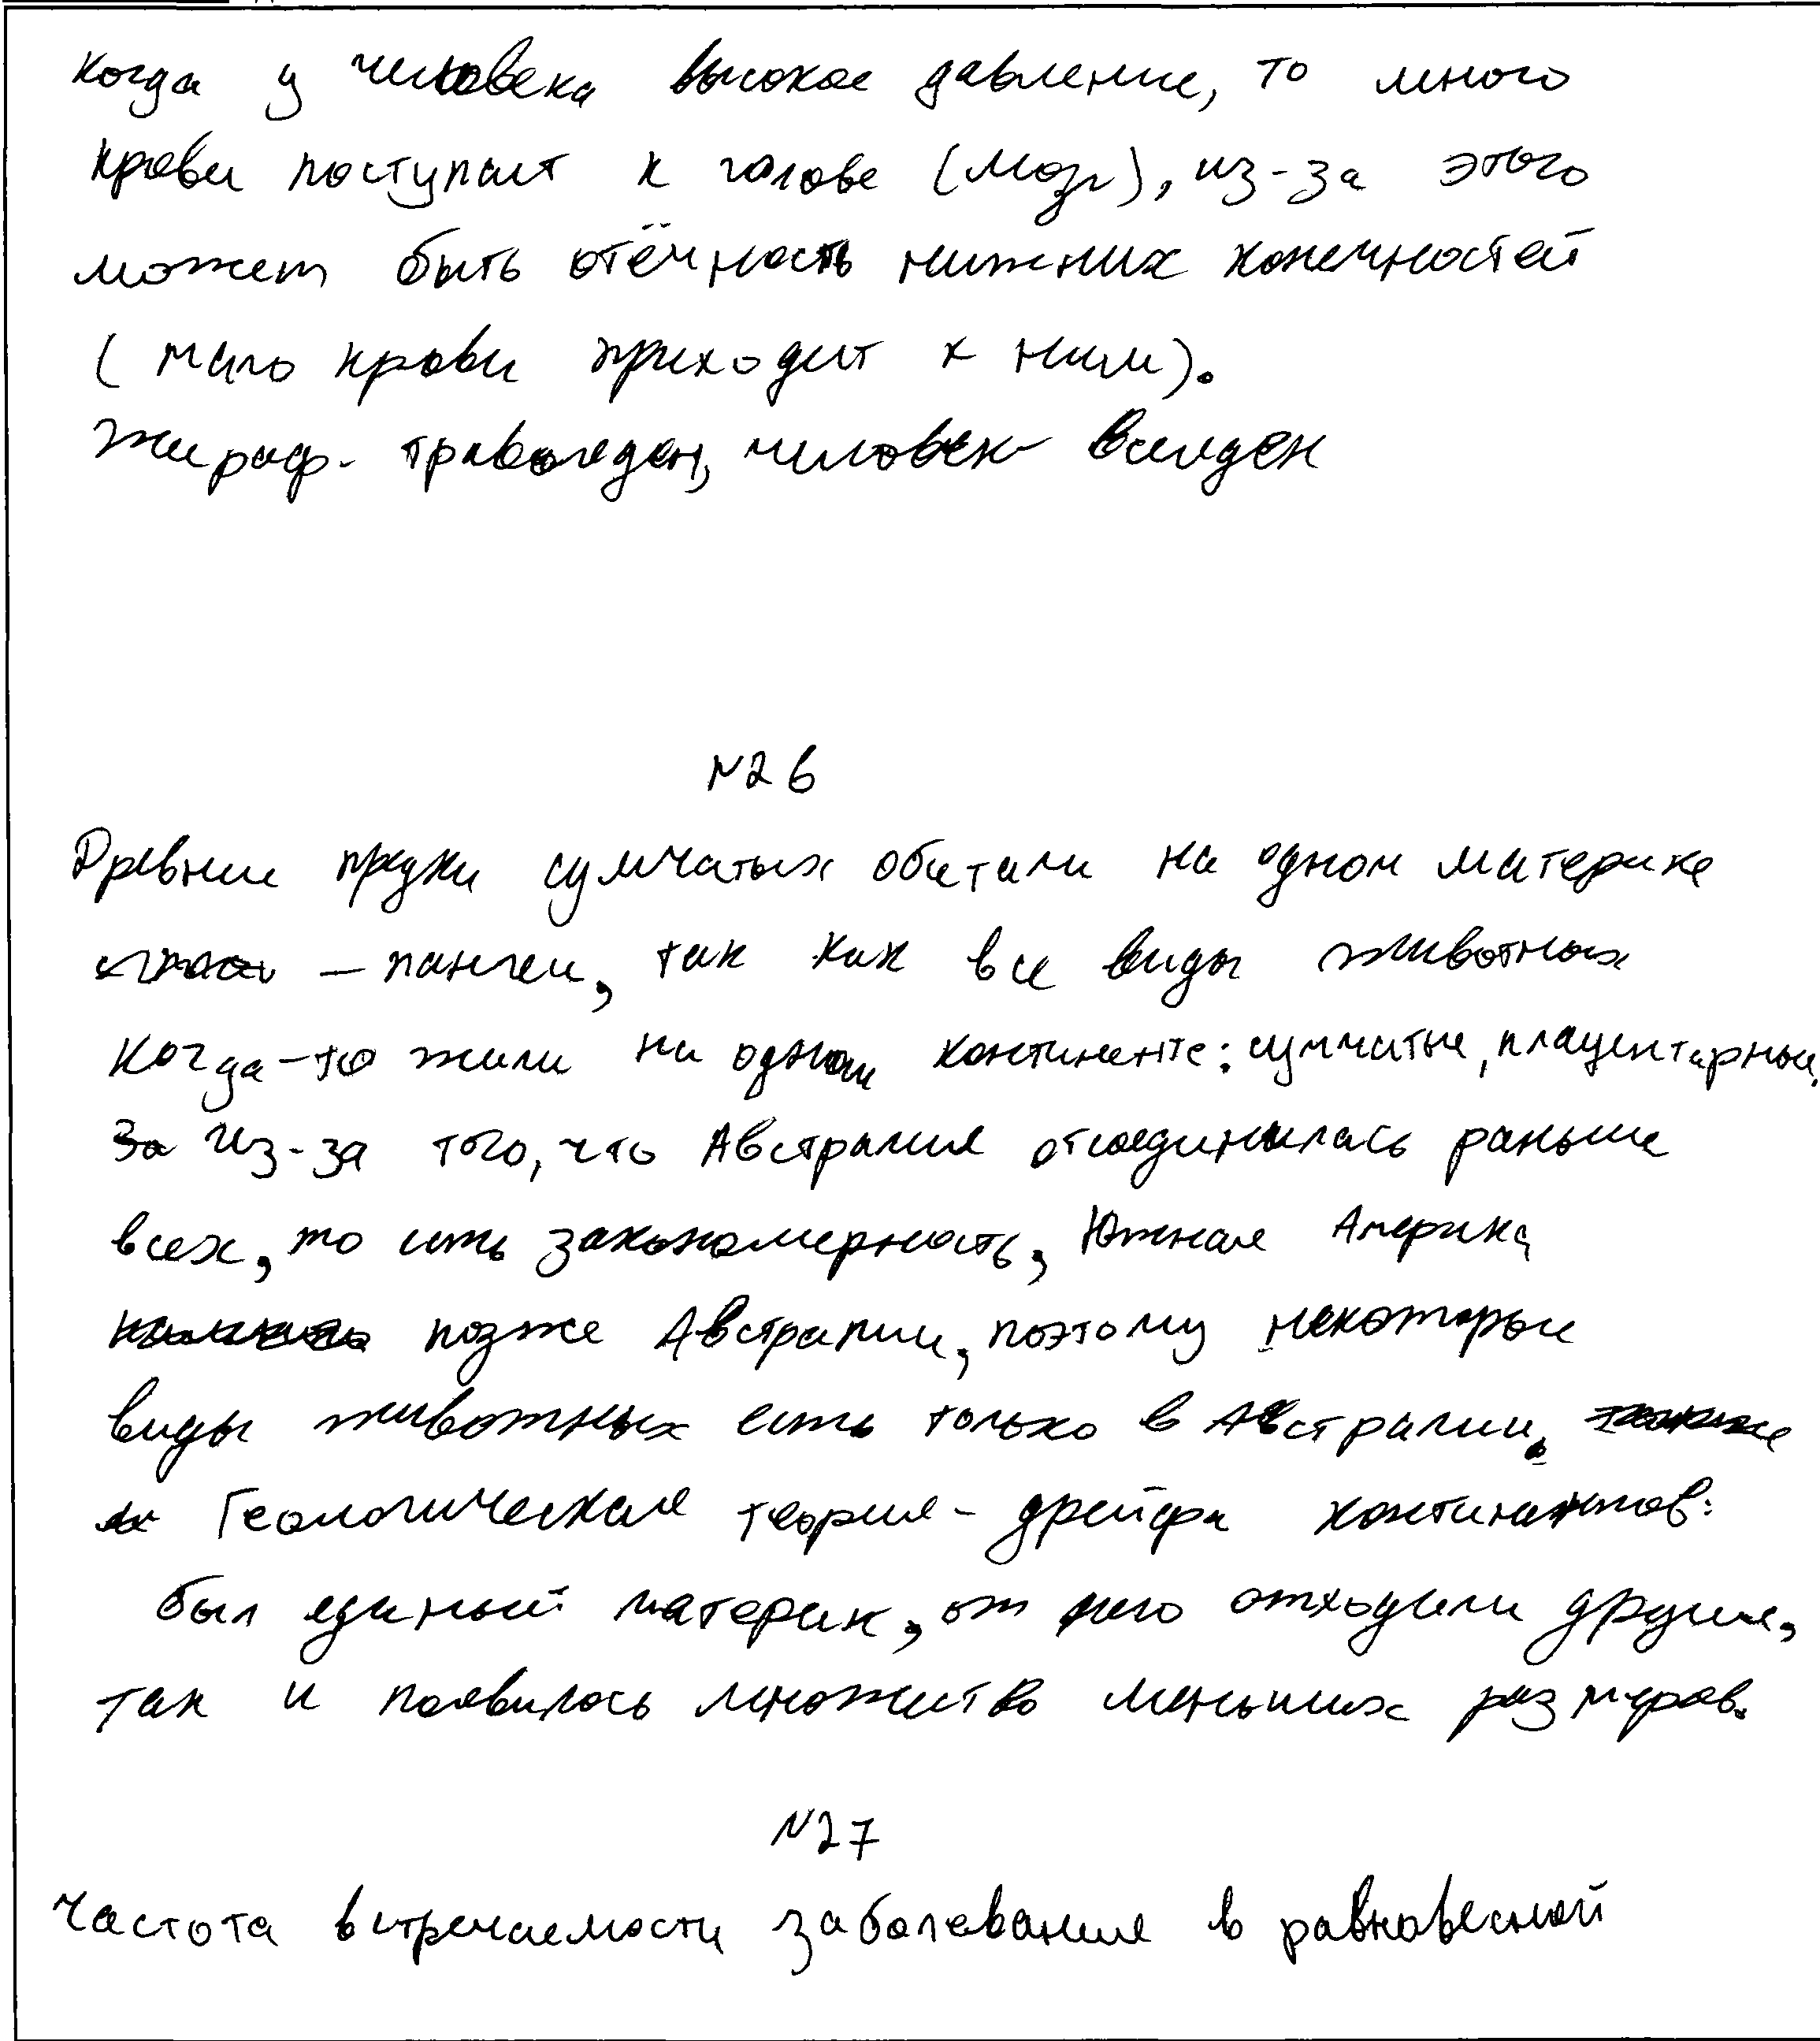 когда у человека высокое давление, то много
крови поступает к голове (мозг), из-за этого
может быть отёчность нижних конечностей
(мало крови приходит к ним).
Жираф - травояден, человек - всеяден
№26
Древние предки сумчатых обитали на одном материке
- пангеи, так как все виды животных
когда-то жили на одном континенте: сумчатые, плацентарные.
За Из-за того, что Австралия отсоединилась раньше
всех, то есть закономерность, Южная Америка
позже Австралии, поэтому некоторые
виды животных есть только в Австралии.
Геологическая теория - дрейфа континентов:
был единый материк, от него отходили другие,
так и появилось множество меньших размеров.
№27
Частота встречаемости заболевания в равновесной